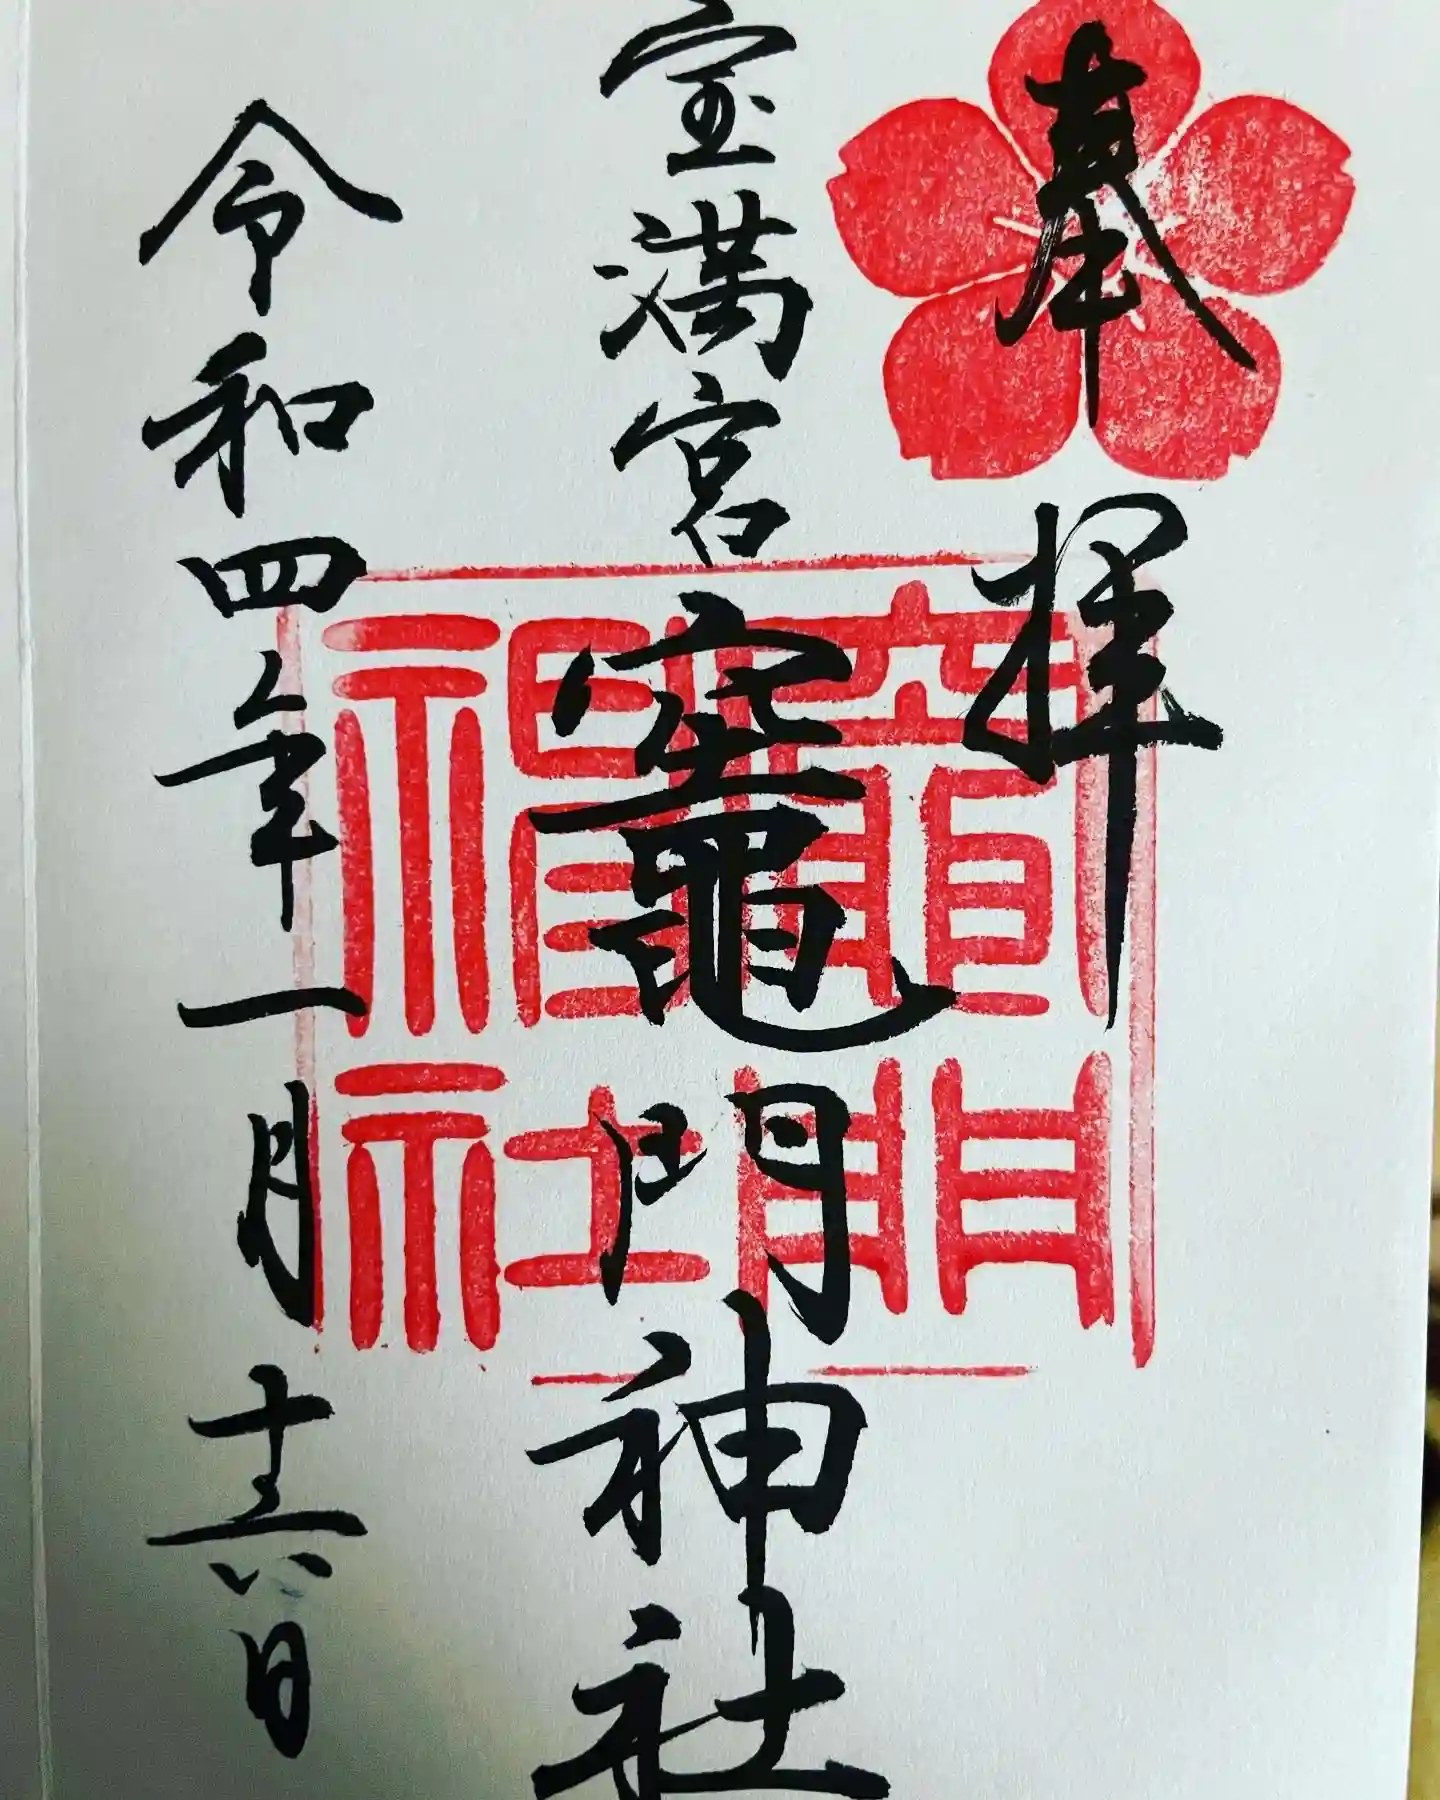 奉拝
宝満宮竈門神社
竈門
神社
令和四年一月十六日